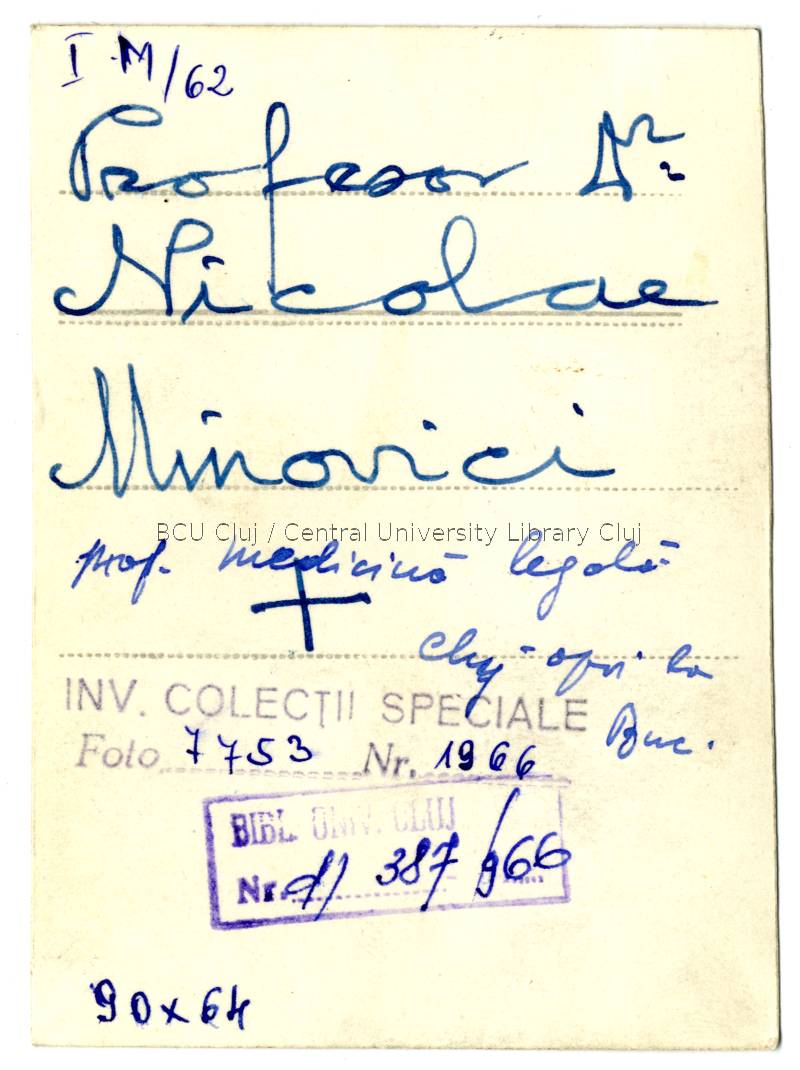 I M/62
Profesor Dr
Nicolae
Minovici
BCU Cluj / Central University Library Cluj
prof. medicină legală
Cluj - apoi la
Buc.
INV. COLECȚII SPECIALE
Foto 7753 Nr. 1966
BIBL. UNIV. CLUJ
Nr. d/ 387/966
90x64